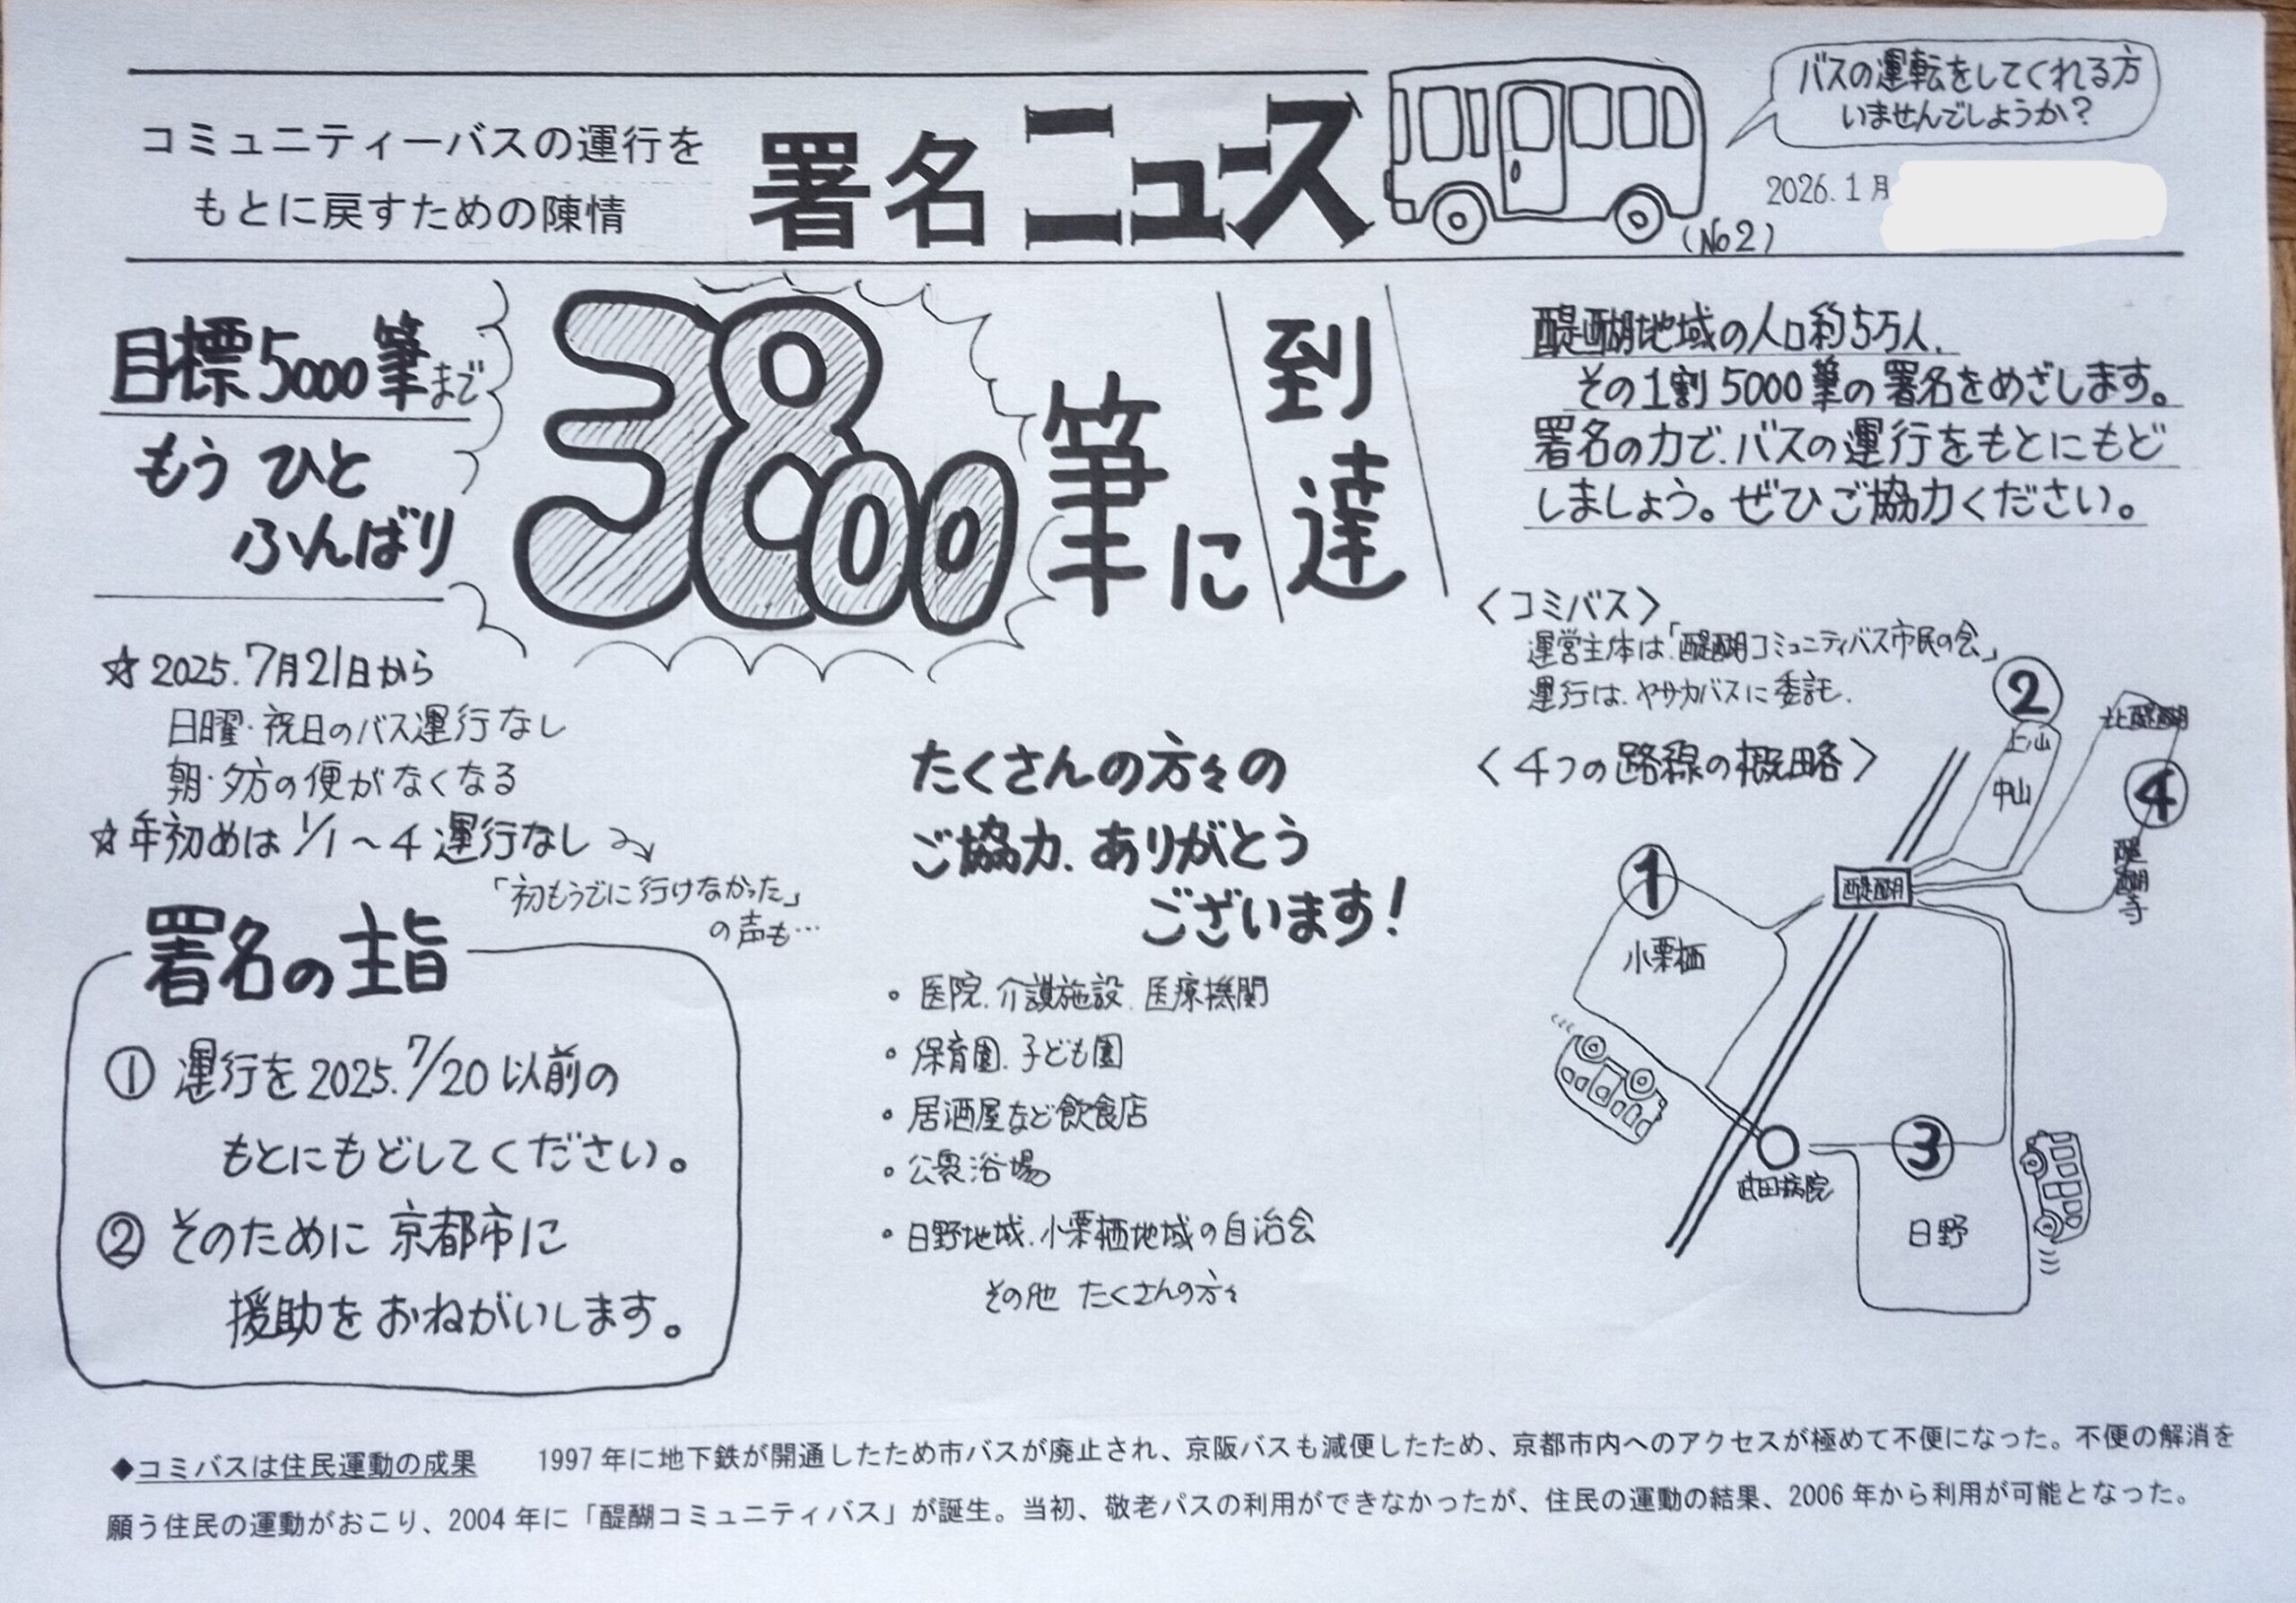 コミュニティーバスの運行を
もとに戻すための陳情
署名ニュース
(No2)
バスの運転をしてくれる方
いませんでしょうか?
2026.1月
目標5000筆まで
もうひと
ふんばり
3800筆に到達
醍醐地域の人口約5万人.
その1割5000筆の署名をめざします。
署名の力で.バスの運行をもとにもど
しましょう。ぜひご協力ください。
☆2025.7月21日から
日曜・祝日のバス運行なし
朝・夕方の便がなくなる
☆年初めは1/1~4運行なし
「初もうでに行けなかった」
の声も…
署名の主旨
① 運行を2025.7/20以前の
もとにもどしてください。
② そのために京都市に
援助をおねがいします。
たくさんの方々の
ご協力.ありがとう
ございます!
・医院.介護施設.医療機関
・保育園.子ども園
・居酒屋など飲食店
・公衆浴場
・日野地域.小栗栖地域の自治会
その他 たくさんの方々
<コミバス>
運営主体は「醍醐コミュニティバス市民の会」
運行は.ヤサカバスに委託.
<4つの路線の概略>
②
上ノ山
中山
北醍醐
④
醍醐寺
醍醐
①
小栗栖
武田病院
③
日野
◆コミバスは住民運動の成果 1997年に地下鉄が開通したため市バスが廃止され、京阪バスも減便したため、京都市内へのアクセスが極めて不便になった。不便の解消を
願う住民の運動がおこり、2004年に「醍醐コミュニティバス」が誕生。当初、敬老パスの利用ができなかったが、住民の運動の結果、2006年から利用が可能となった。